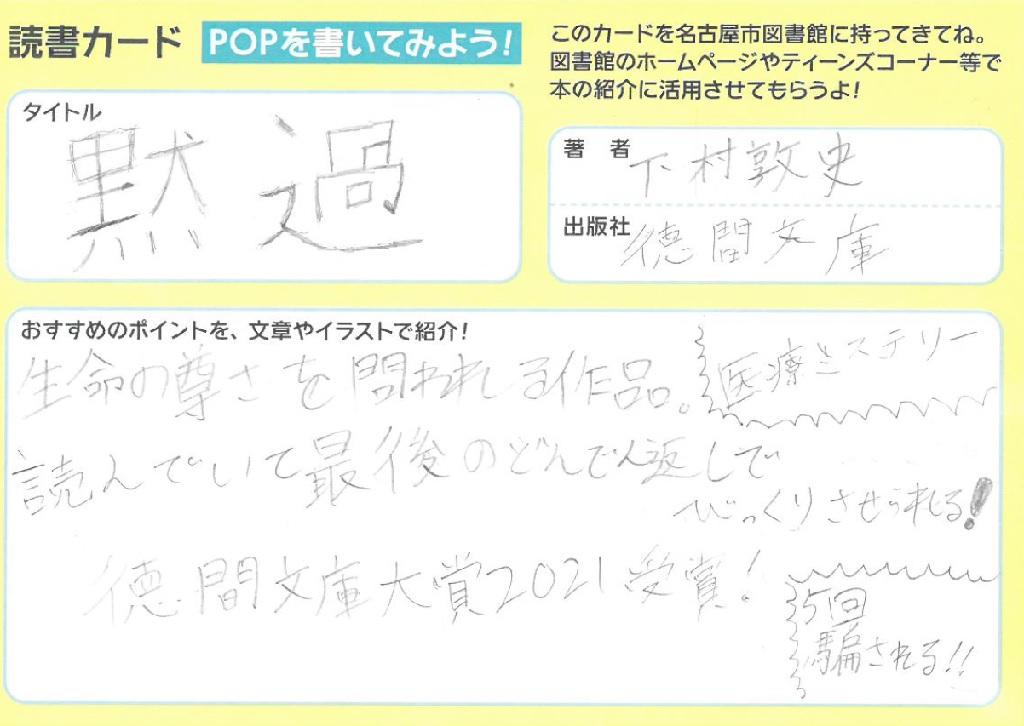 読書カード POPを書いてみよう!
このカードを名古屋市図書館に持ってきてね。
図書館のホームページやティーンズコーナー等で
本の紹介に活用させてもらうよ!
タイトル
黙過
著者 下村敦史
出版社 徳間文庫
おすすめのポイントを、文章やイラストで紹介!
生命の尊さを問われる作品。
医療ミステリー
読んでいて最後のどんでん返しで
びっくりさせられる!
徳間文庫大賞2021受賞!
5回
騙される!!